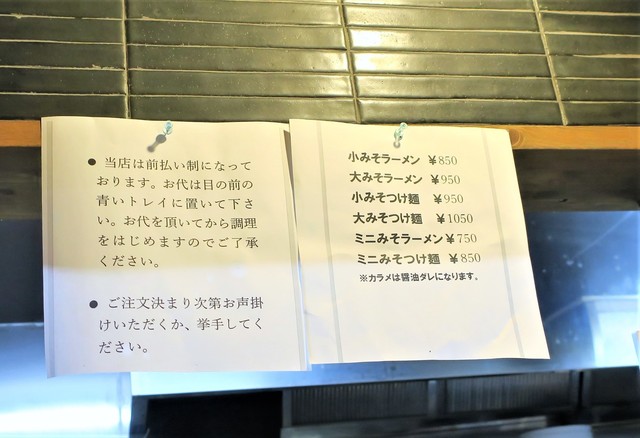 ● 当店は前払い制になって
おります。お代は目の前の
青いトレイに置いて下さ
い。お代を頂いてから調理
をはじめますのでご了承
ください。
● ご注文決まり次第お声掛
けいただくか、挙手してく
ださい。
小みそラーメン ¥850
大みそラーメン ¥950
小みそつけ麺 ¥950
大みそつけ麺 ¥1050
ミニみそラーメン¥750
ミニみそつけ麺 ¥850
※カラメは醤油ダレになります。